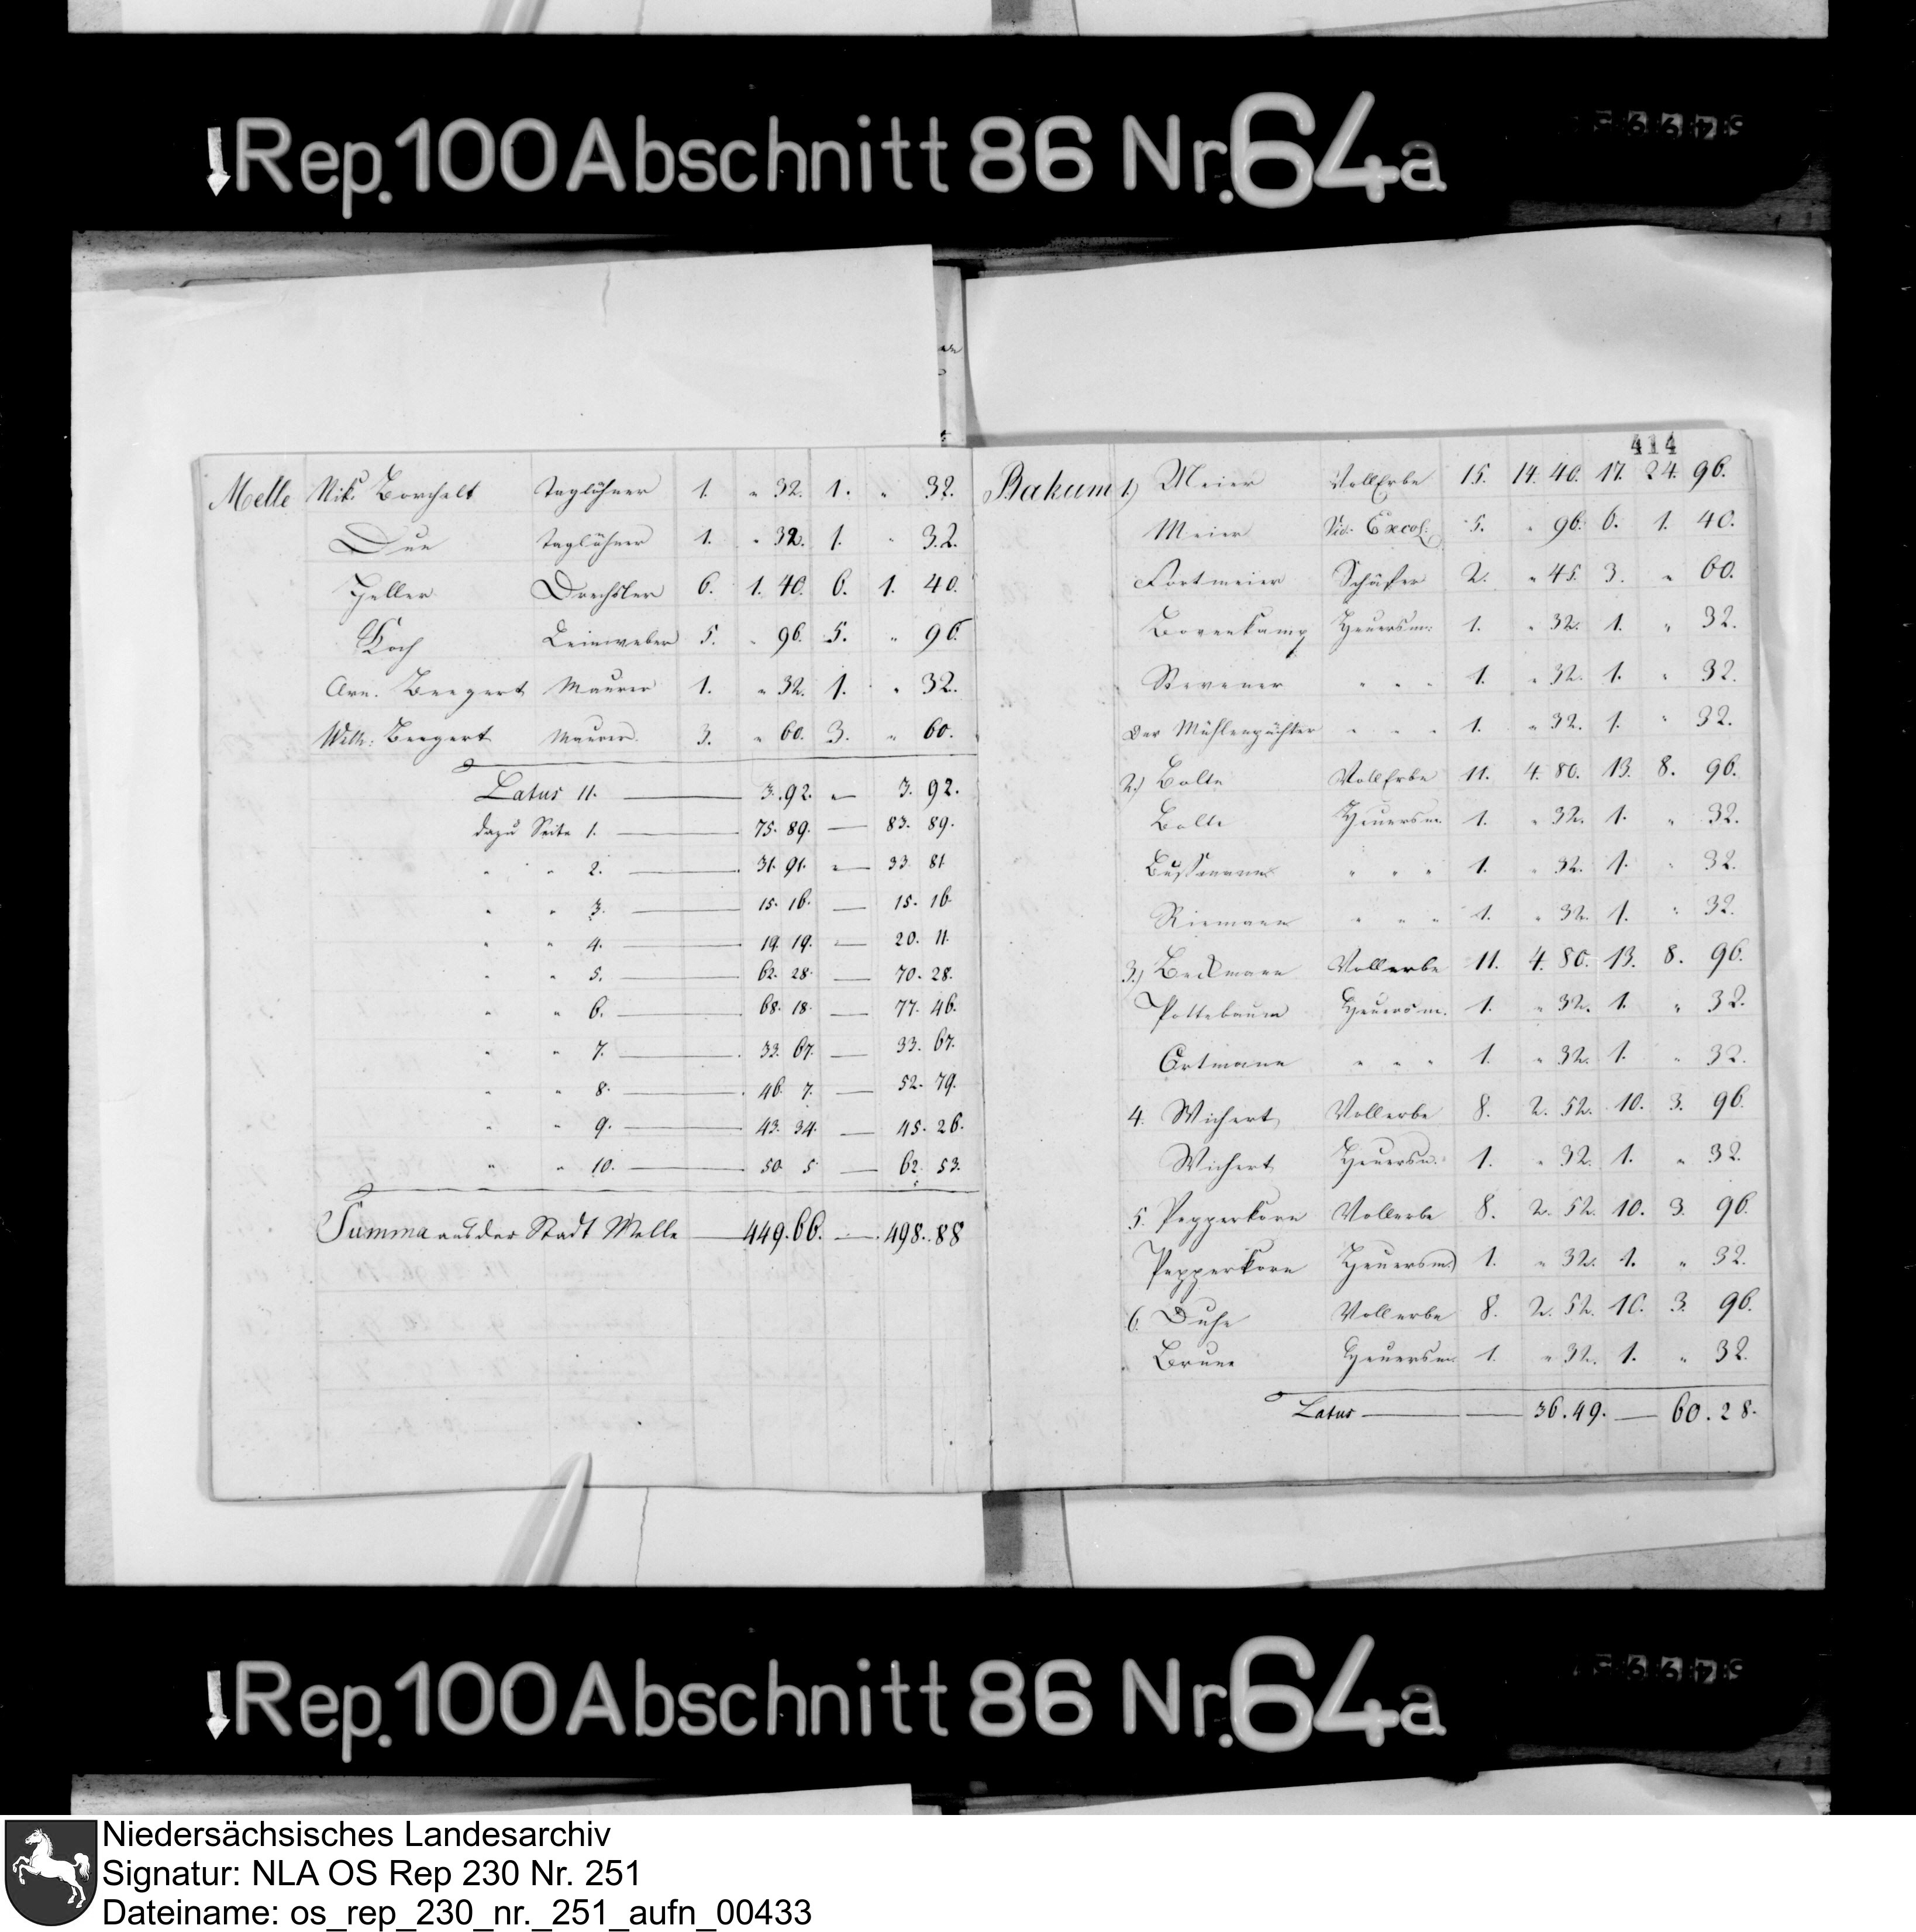 Rep. 100 Abschnitt 86 Nr. 64a
Melle Nik: Borchelt Taglöhner 1. " 32. 1. " 32.
Due Taglöhner 1. " 32. 1. " 32.
Heller Drechsler 6. 1. 40. 6. 1. 40.
Koch Leinweber 5. " 96. 5. " 96.
Arn. Beegert Maurer 1. " 32. 1. " 32.
Wilh: Beegert Maurer 3. " 60. 3. " 60.
Latus 11. — 3. 92. — 3. 92.
dazu Seite 1. — 75. 89. — 83. 89.
" " 2. — 31. 91. — 33. 81
" " 3. — 15. 16. — 15. 16.
" " 4. — 19. 19. — 20. 11.
" " 5. — 62. 28. — 70. 28.
" " 6. — 68. 18. — 77. 46.
" " 7. — 33. 67. — 33. 67.
" " 8. — 46. 7. — 52. 79.
" " 9. — 43. 34. — 45. 26.
" " 10. — 50. 5. — 62. 53.
Summa aus der Stadt Melle — 449. 66. — 498. 88
414
Bakum 1) Meier VollErbe 15. 14. 40. 17. 24. 96.
Meier Excol. 5. " 96. 6. 1. 40.
Fortmeier Schäfer 2. " 45. 3. " 60.
Bovenkamp Heuersm: 1. " 32. 1. " 32.
Stevener " " " 1. " 32. 1. " 32.
Der Mühlenpächter " " " 1. " 32. 1. " 32.
2.) Bolte VollErbe 11. 4. 80. 13. 8. 96.
Bolte Heuersm. 1. " 32. 1. " 32.
Bussmann " " " 1. " 32. 1. " 32.
Riemann " " " 1. " 32. 1. " 32.
3.) Beckmann Vollerbe 11. 4. 80. 13. 8. 96.
Pottebaum Heuersm. 1. " 32. 1. " 32.
Ortmann " " " 1. " 32. 1. " 32.
4. Wichert Vollerbe 8. 2. 52. 10. 3. 96.
Wichert Heuersm. 1. " 32. 1. " 32.
5. Pepperkorn Vollerbe 8. 2. 52. 10. 3. 96.
Pepperkorn Heuersm) 1. " 32. 1. " 32.
6. Duhe Vollerbe 8. 2. 52. 10. 3. 96.
Brune Heuersm 1. " 32. 1. " 32.
Latus — 36. 49. — 60. 28.
Rep. 100 Abschnitt 86 Nr. 64a
Niedersächsisches Landesarchiv
Signatur: NLA OS Rep 230 Nr. 251
Dateiname: os_rep_230_nr._251_aufn_00433